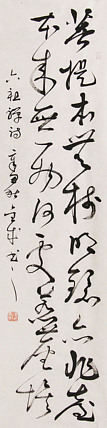 菩提本無樹明鏡亦非臺
本來無一物何處惹塵埃
六祖禪詩